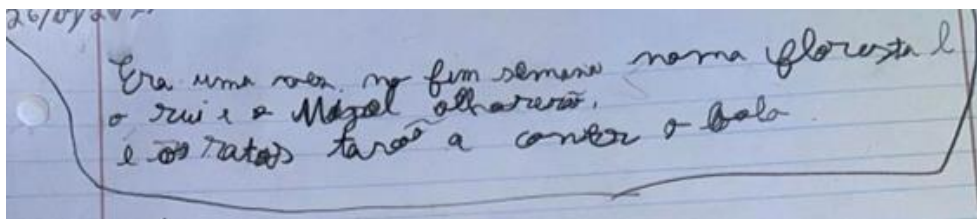 Era uma vez, no fim semana noma floresta e
o rui e o Mogel olharerão.
e os ratos tarão a comer o bolo